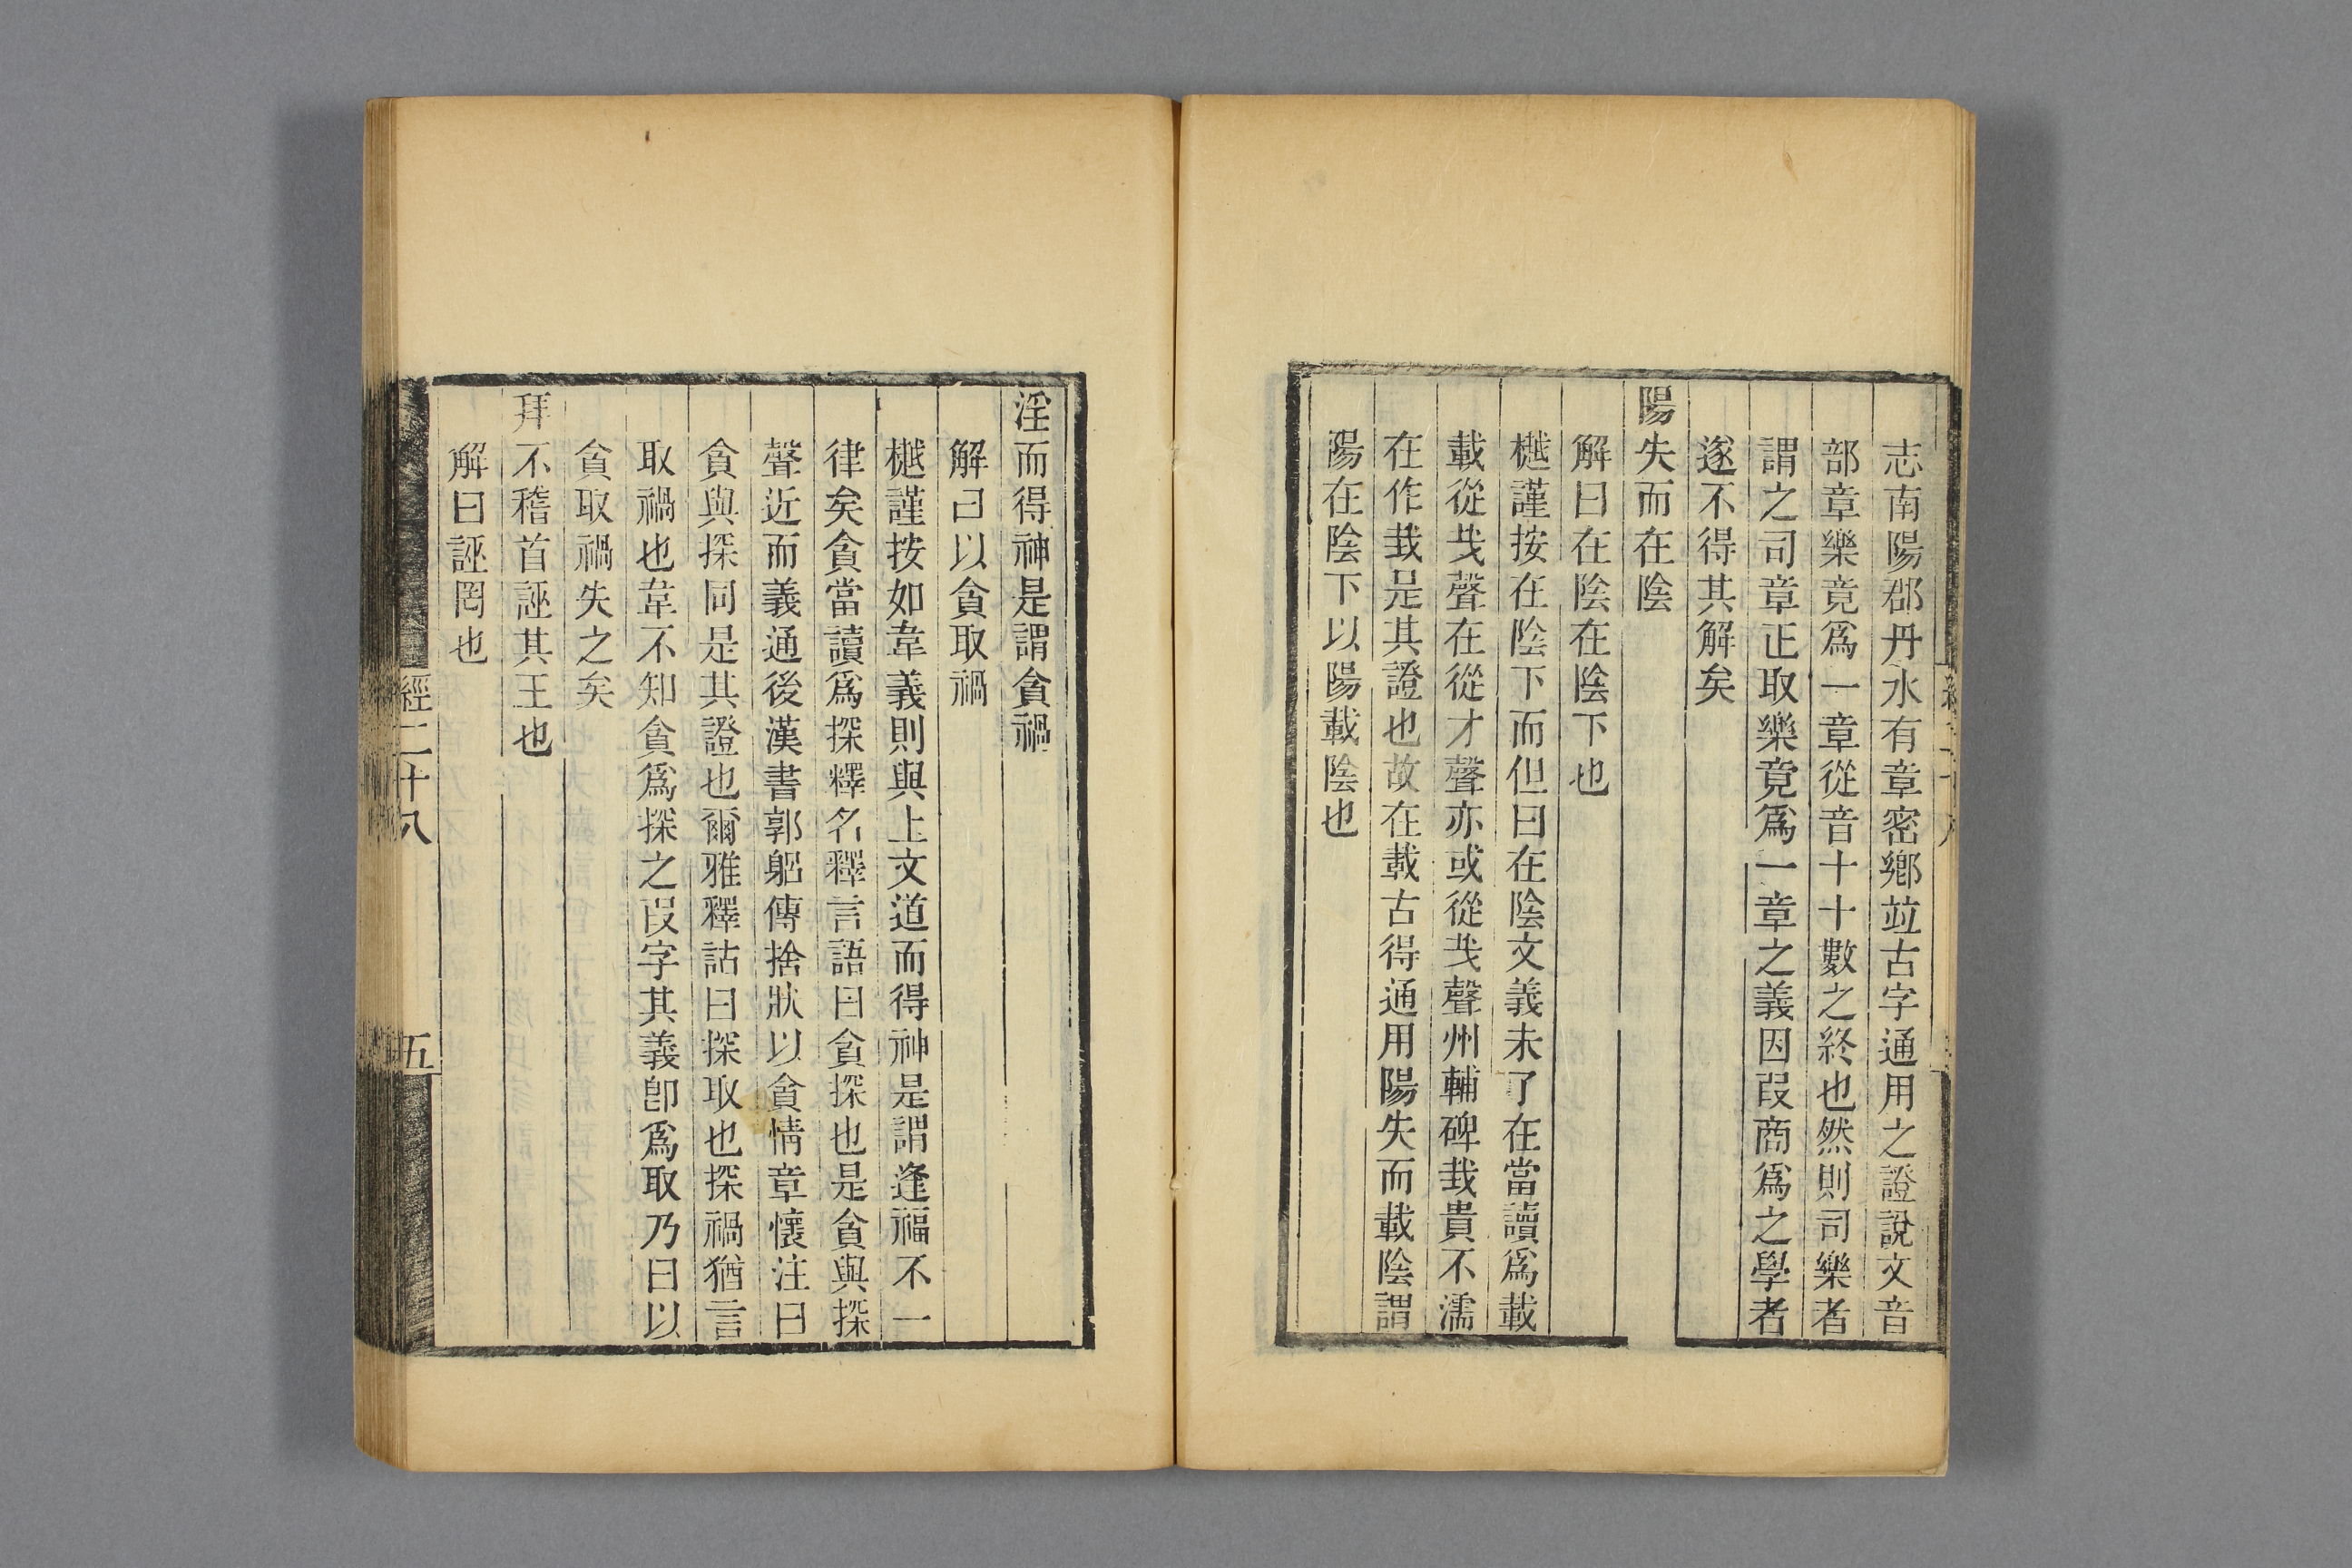 志南陽郡丹水有章密鄉竝古字通用之證說文音
部章樂竟爲一章從音十十數之終也然則司樂者
謂之司章正取樂竟爲一章之義因叚商爲之學者
遂不得其解矣
陽失而在陰
解曰在陰在陰下也
樾謹按在陰下而但曰在陰文義未了在當讀爲載
載從𢦏聲在從才聲亦或從𢦏聲州輔碑㦲貴不濡
在作㦲是其證也故在載古得通用陽失而載陰謂
陽在陰下以陽載陰也
淫而得神是謂貪禍
解曰以貪取禍
樾謹按如韋義則與上文道而得神是謂逢福不一
律矣貪當讀爲探釋名釋言語曰貪探也是貪與探
聲近而義通後漢書郭躬傳捨狀以貪情章懷注曰
貪與探同是其證也爾雅釋詁曰探取也探禍猶言
取禍也韋不知貪爲探之叚字其義卽爲取乃曰以
貪取禍失之矣
拜不稽首誣其王也
解曰誣罔也
經二十八
五